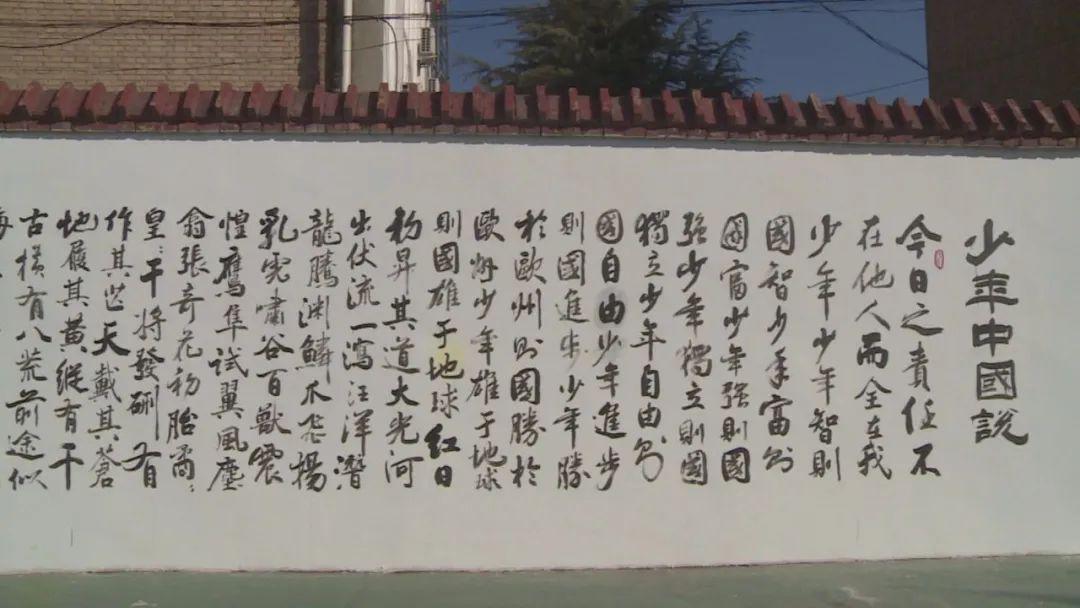 少年中國說
今日之責任不
在他人而全在我
少年少年智則
國智少年富則
國富少年强則國
强少年獨立則國
獨立少年自由則
國自由少年進步
則國進步少年勝
於歐州則國勝於
歐州少年雄于地球
則國雄于地球紅日
初昇其道大光河
出伏流一瀉汪洋潛
龍騰渊鱗爪飛揚
乳虎嘯谷百獸震
惶鷹隼試翼風塵
翕張奇花初胎矞〻
皇〻干將發硎有
作其芒天戴其蒼
地履其黄縱有千
古横有八荒前途似
海